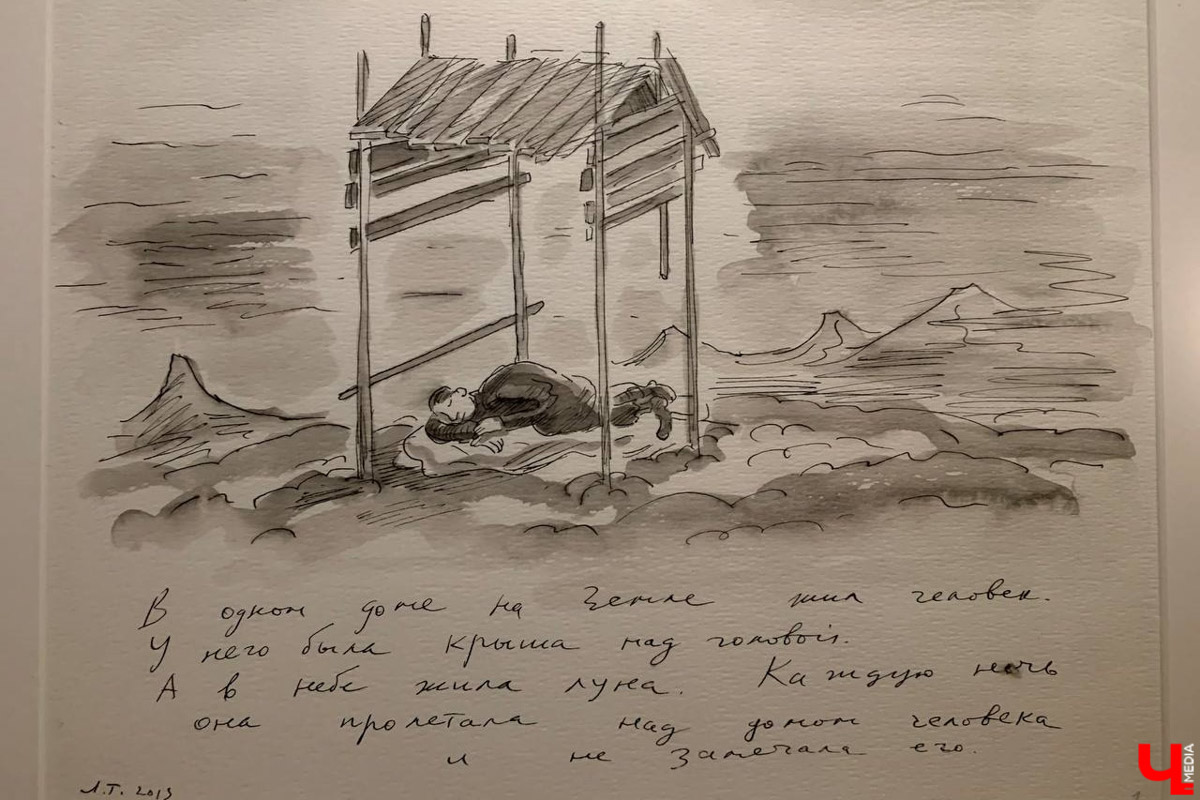 В одном доме на Земле жил человек.
У него была крыша над головой.
А в небе жила луна. Каждую ночь
она пролетала над домом человека
и не замечала его.
Л.Т. 2013
Ч MEDIA